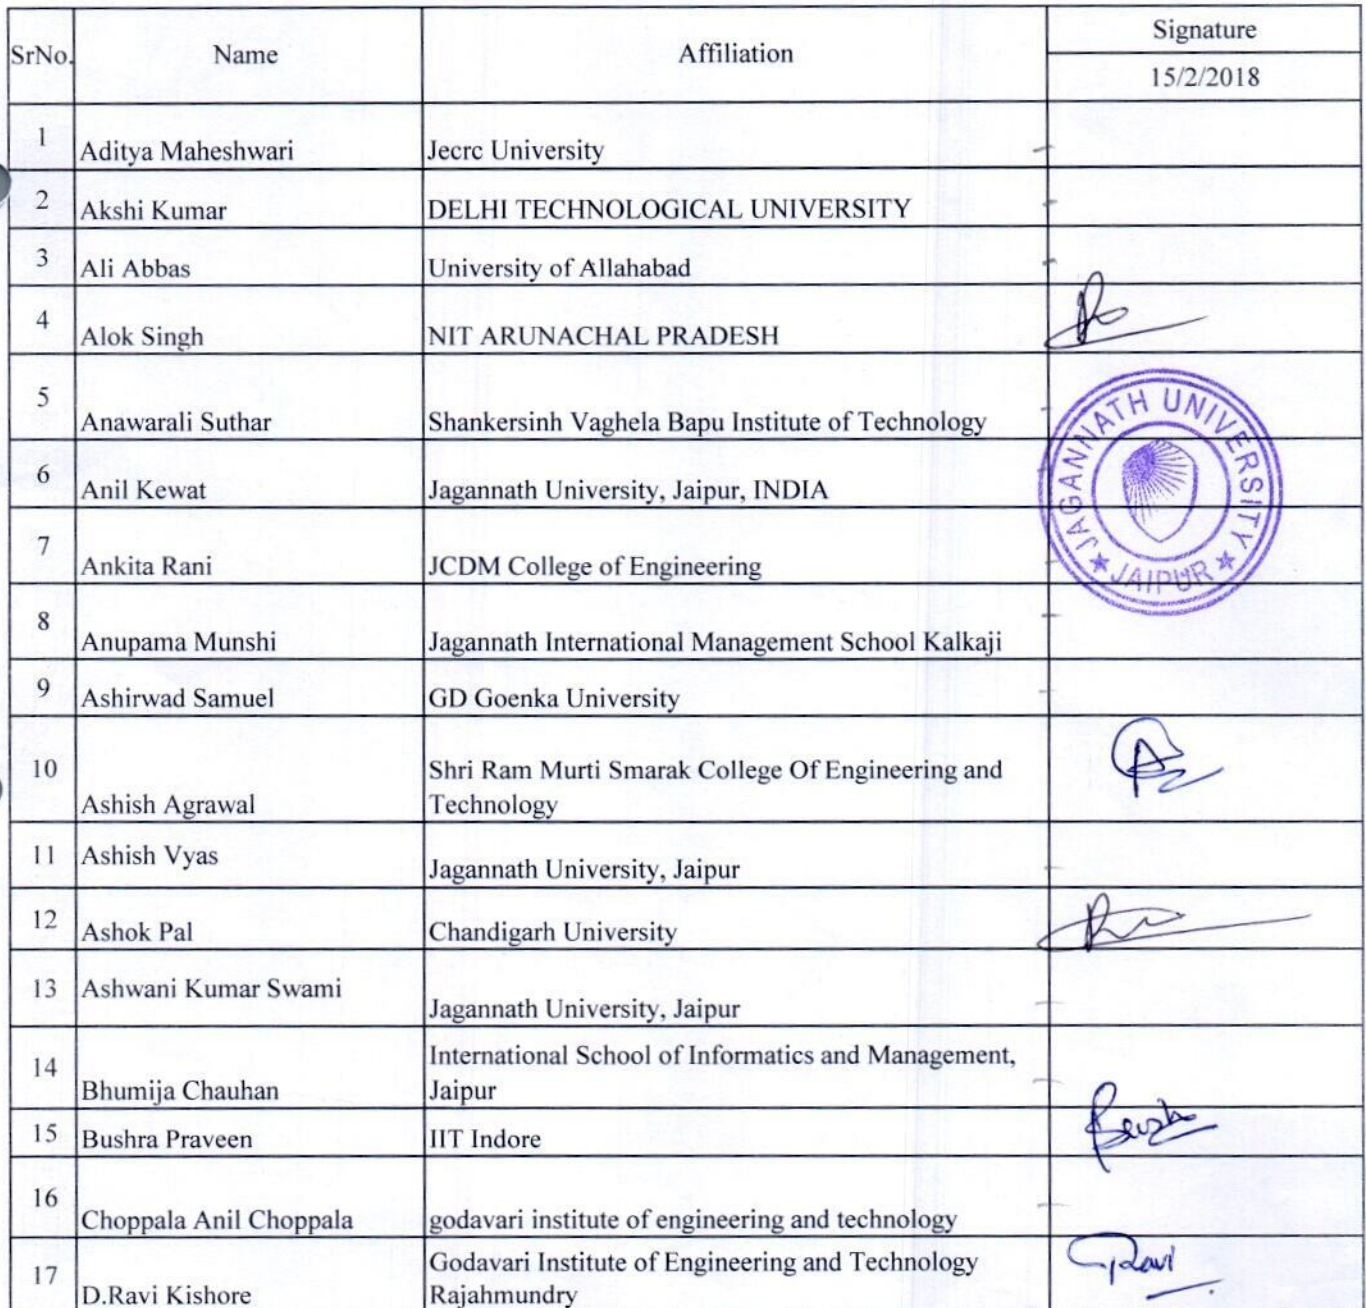 SrNo. Name Affiliation Signature
15/2/2018
1 Aditya Maheshwari Jecrc University -
2 Akshi Kumar DELHI TECHNOLOGICAL UNIVERSITY -
3 Ali Abbas University of Allahabad -
4 Alok Singh NIT ARUNACHAL PRADESH
5 Anawarali Suthar Shankersinh Vaghela Bapu Institute of Technology -
6 Anil Kewat Jagannath University, Jaipur, INDIA
JAGANNATH UNIVERSITY
★ JAIPUR ★
7 Ankita Rani JCDM College of Engineering
8 Anupama Munshi Jagannath International Management School Kalkaji -
9 Ashirwad Samuel GD Goenka University -
10 Ashish Agrawal Shri Ram Murti Smarak College Of Engineering and
Technology
11 Ashish Vyas Jagannath University, Jaipur -
12 Ashok Pal Chandigarh University
13 Ashwani Kumar Swami Jagannath University, Jaipur -
14 Bhumija Chauhan International School of Informatics and Management,
Jaipur -
15 Bushra Praveen IIT Indore
16 Choppala Anil Choppala godavari institute of engineering and technology -
17 D.Ravi Kishore Godavari Institute of Engineering and Technology
Rajahmundry Ravi